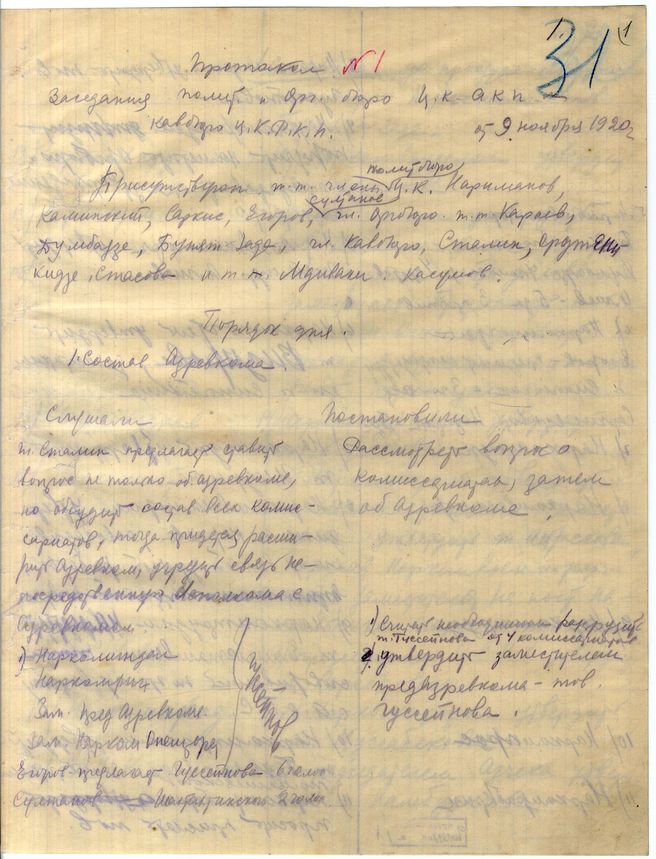 1. 31 1
Протокол №1
Заседания полит и Оргбюро Ц.К АКП и
Кавбюро Ц.К.Р.К.П. от 9 ноября 1920г
политбюро
Присутствовали т.т. члены Ц.К. Нариманов,
султанов
Каминский, Саркис, Егоров, чл. Оргбюро т.т. Караев,
Думбадзе, Буният Заде, чл. Кавбюро, Сталин, Орджени-
кидзе, Стасова и т.т. Мдивани. Касумов.
Порядок дня.
1. Состав Азревкома
Слушали
т. Сталин предлагает ставить
вопрос не только об азревкоме,
но обсудить состав всех комис-
сариатов, тогда придется расши-
рить Азревком, учредить связь не-
посредственную Исполкома с
Азревкомом
1) Наркоминдел
Наркомпрос
Зам. Пред Азревкома.
Зам. Нарком
Гусейнов
Егоров предлагает Гуссейнова
Султанов
Постановили
Рассмотреть вопрос о
комиссариатах, затем
об Азревкоме
1) Считать необходимым разгрузить
т. Гуссейнова от 4 комиссариатов
2. утвердить заместителем
предазревкома – тов.
Гуссейнова.